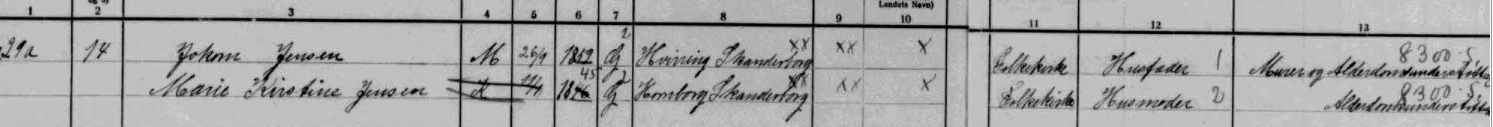 Landets Navn)
1 2 3 4 5 6 7 8 9 10 11 12 13
29a 14 Jokom Jensen M 26/9 G 2 Hvirring Skanderborg xx xx x Folkekirke Husfader 1 Murer og 8300.5
Marie Kirstine Jensen K 1846 45 G Hornborg Skanderborg xx xx x Folkekirke Husmoder 2 8300.5